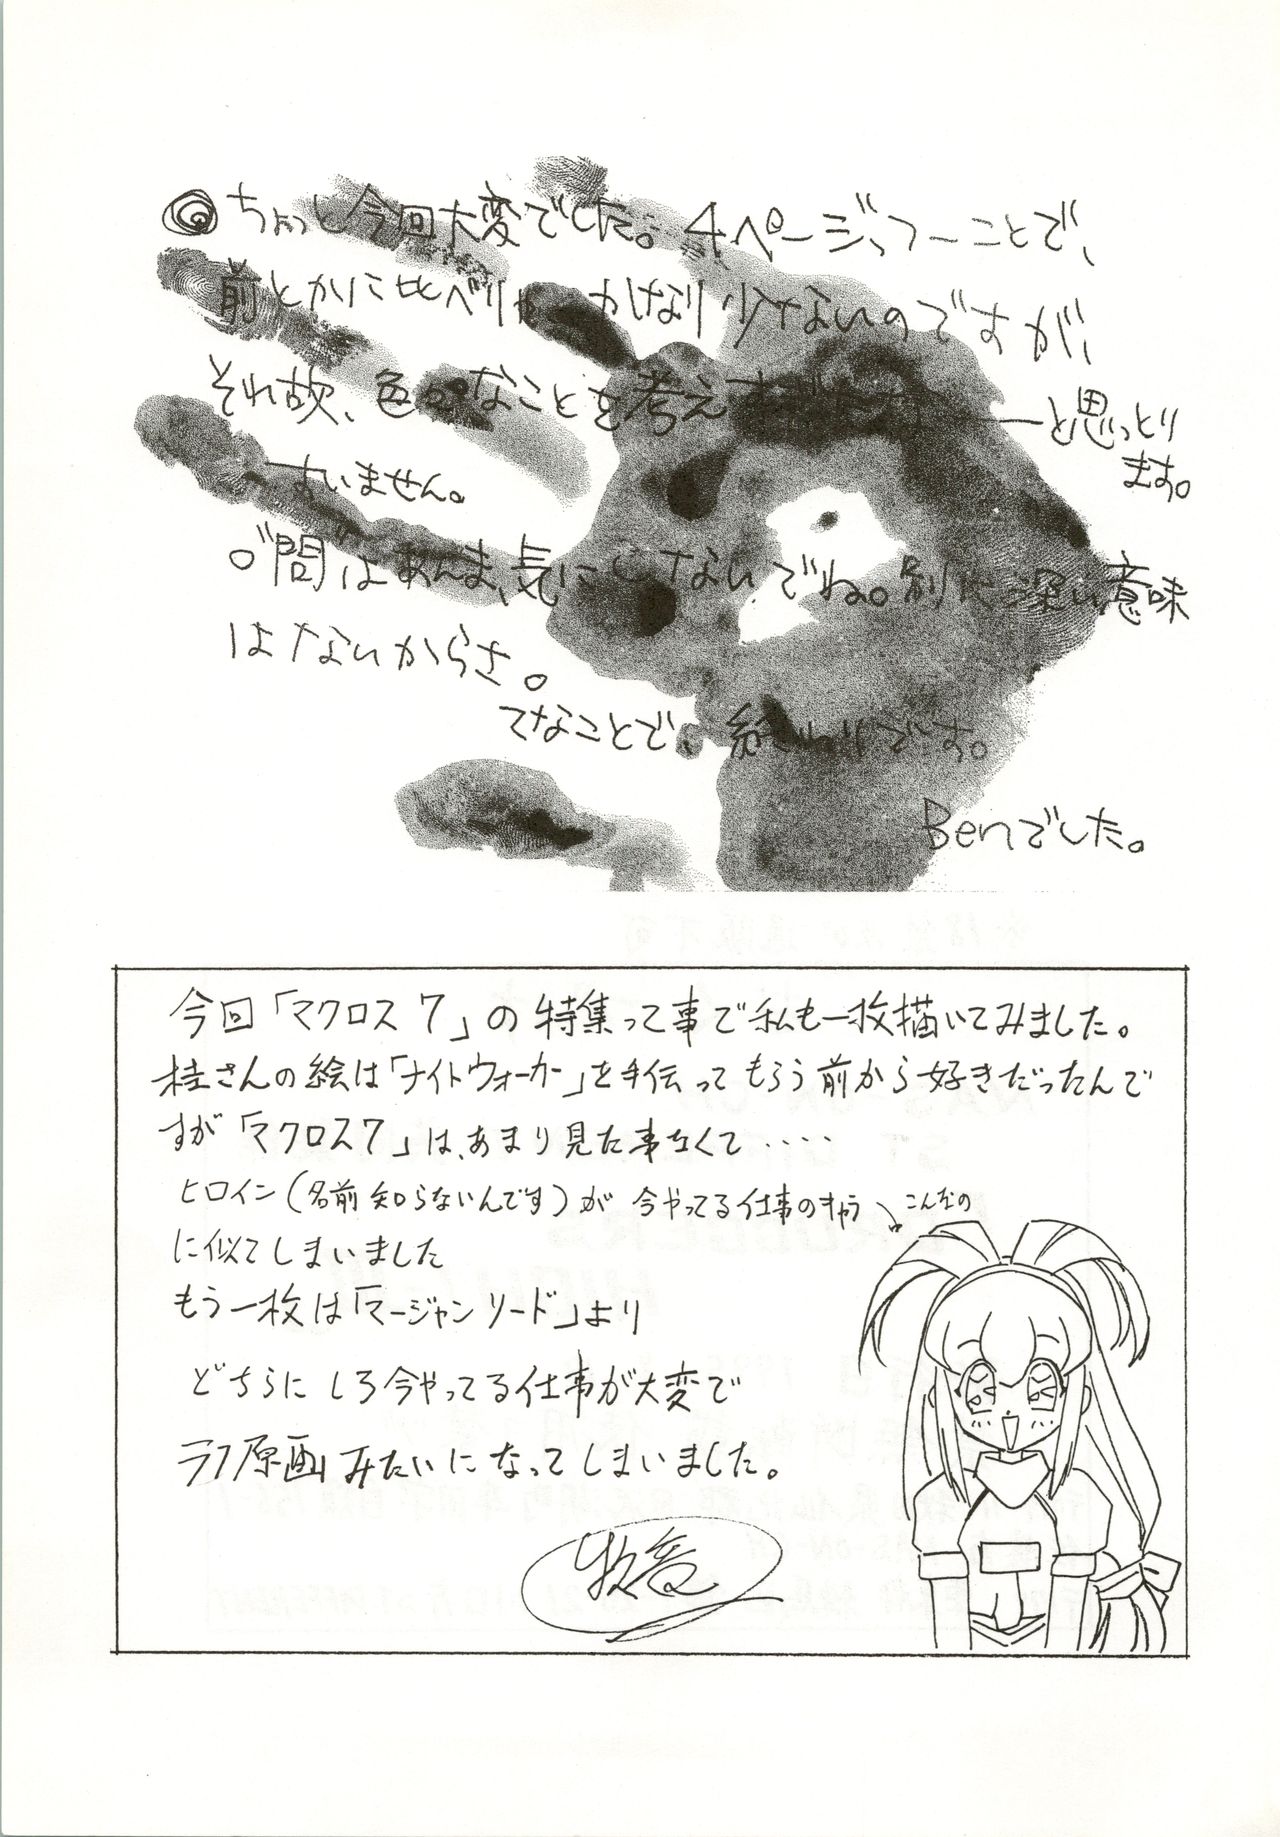 ちょっと今回大変でした。4ページっつーことで、
前とかに比べりゃ かなり少ないのですが、
それ故、色々なことを考え ーと思っとり
ます。
すいません。
"問"はあんま、気にしないでね。別に深い意味
はないからさ。
てなことで、終わりです。
Benでした。
今回「マクロス7」の特集って事で私も一枚描いてみました。
桂さんの絵は「ナイトウォーカー」を手伝ってもらう前から好きだったんで
すが「マクロス7」は、あまり見た事なくて‥‥
ヒロイン(名前知らないんです)が 今やってる仕事のキャラ
こんなの
に似てしまいました
もう一枚は「マージャンリード」より
どちらにしろ今やってる仕事が大変で
ラフ原画みたいになってしまいました。